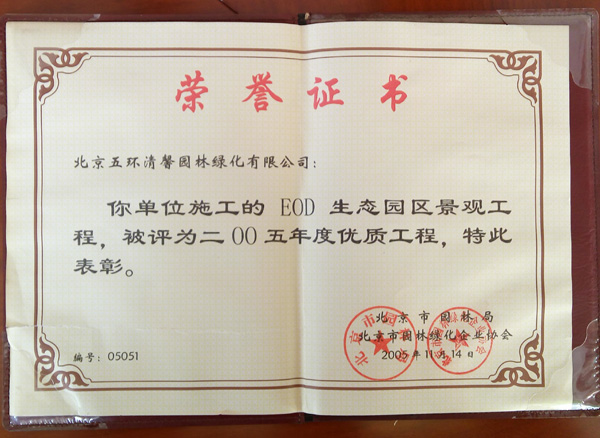 荣誉证书
北京五环清馨园林绿化有限公司：
你单位施工的 EOD 生态园区景观工
程，被评为二OO五年度优质工程，特此
表彰。
北京市园林局
北京市园林绿化企业协会
编号：05051
2005年11月14日